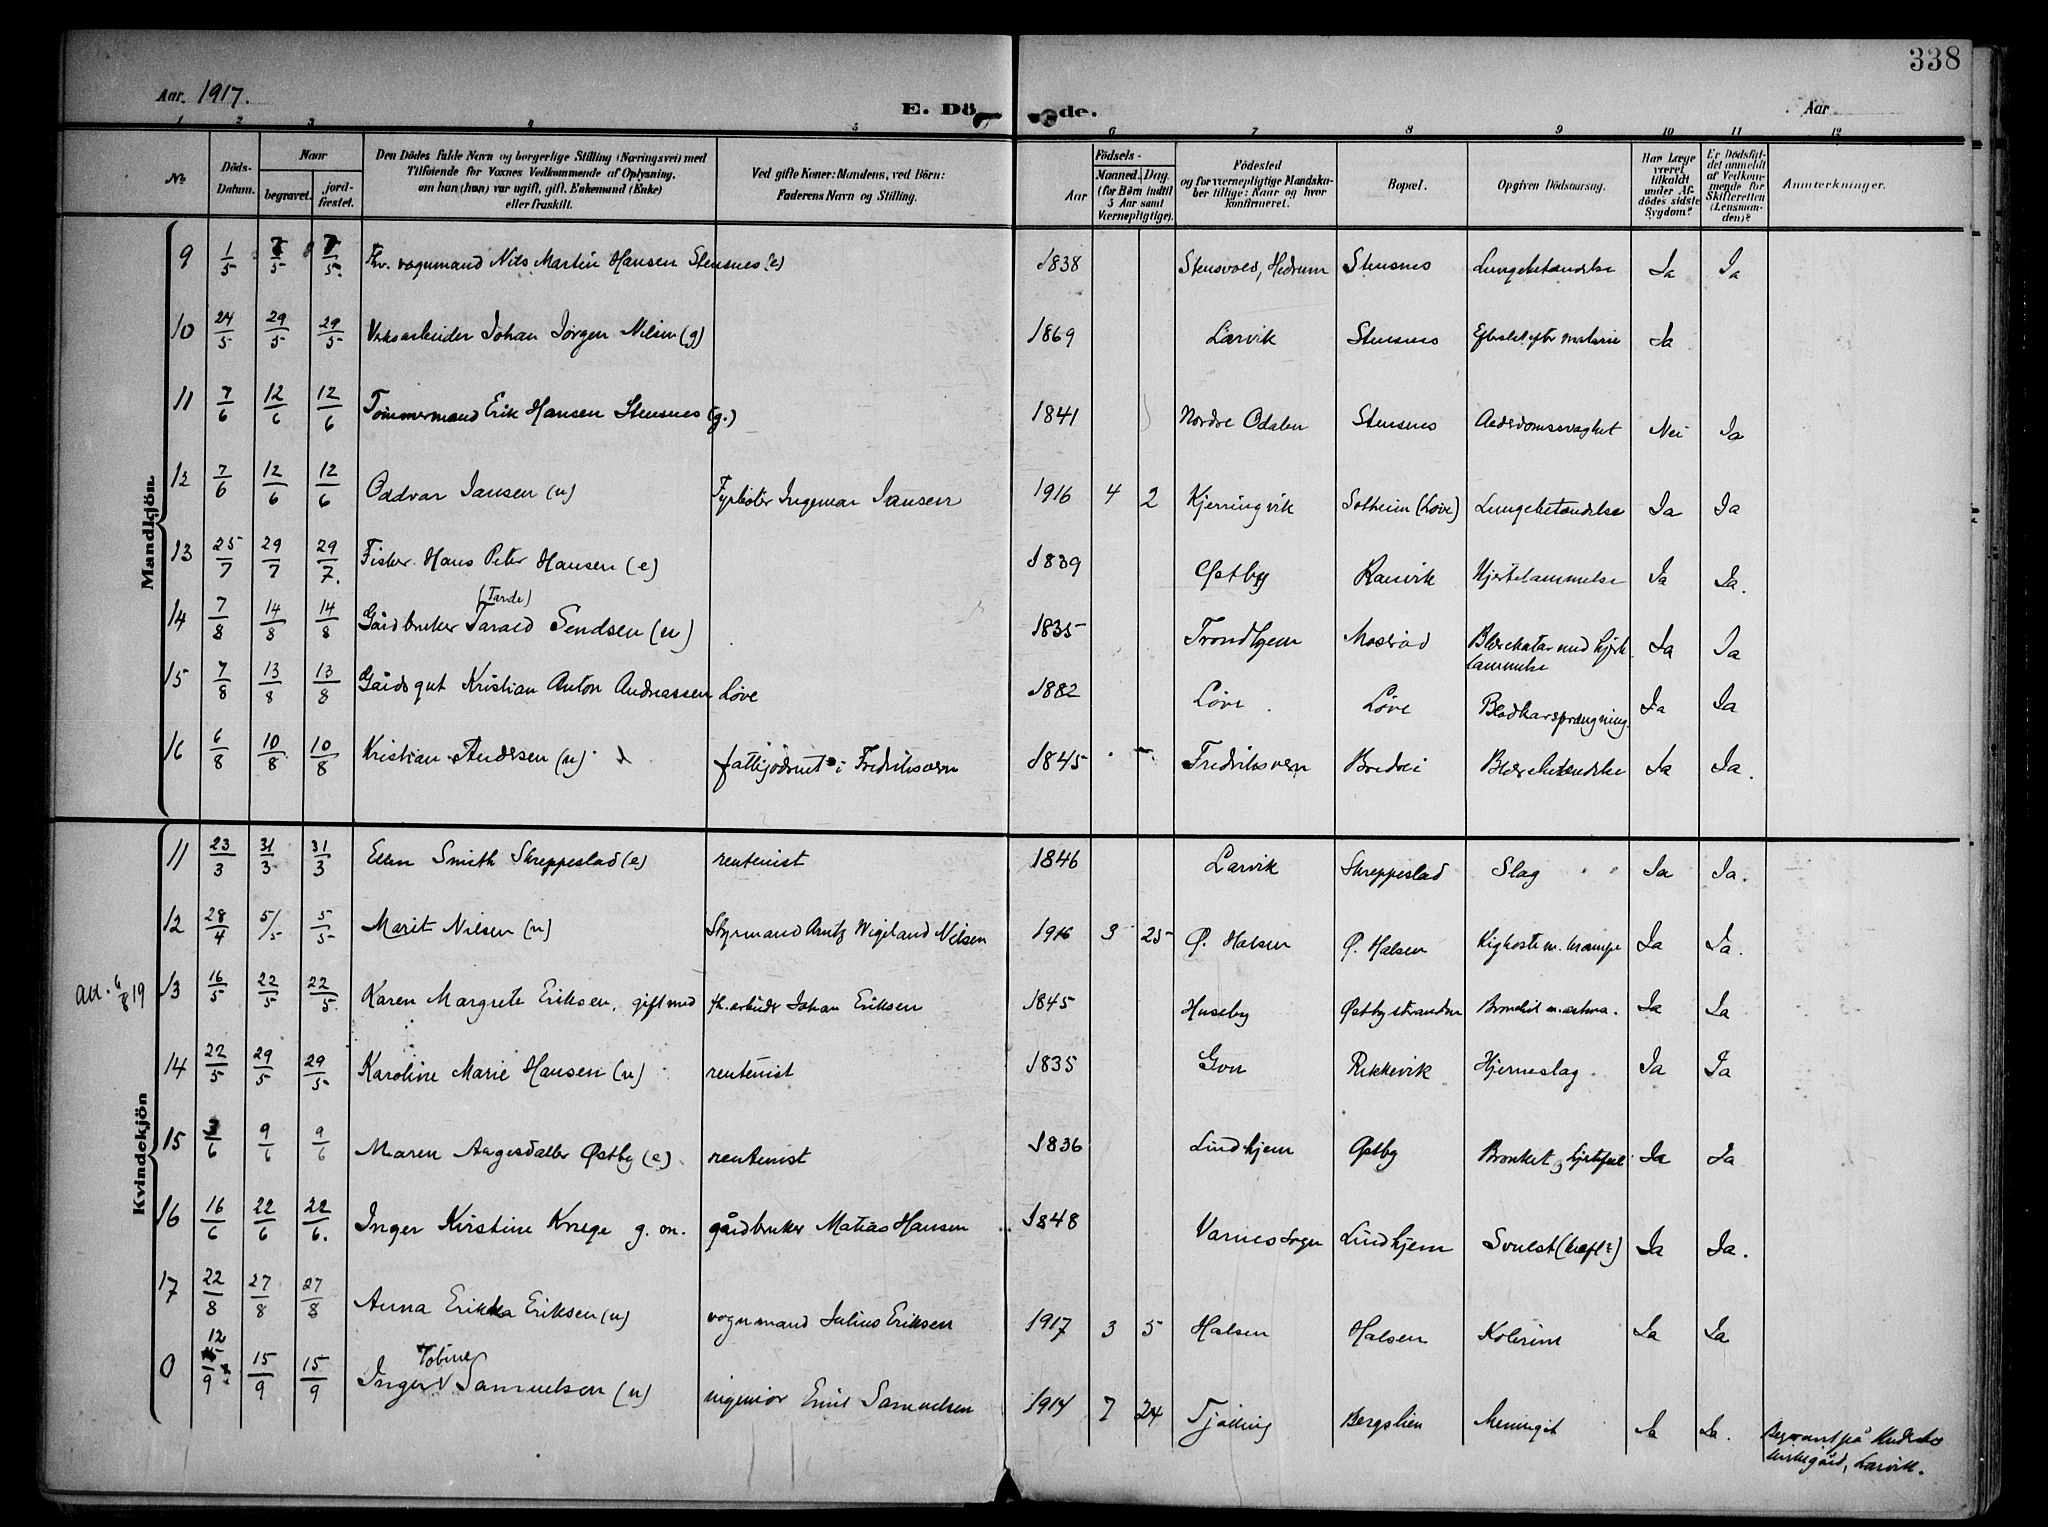 338
Aar. 1917.
E. Dö de.
Aar
1 2 3 4 5 6 7 8 9 10 11 12
No
Döds-Datum.
Naar
begravet.
jord-fæstet.
Den Dödes fulde Navn og borgerlige Stilling (Næringsvei) med
Tilföiende for Voxnes Vedkommende af Oplysning,
om han (hun) var ugift, gift, Enkemand (Enke)
eller fraskilt.
Ved gifte Koner: Mandens, ved Börn:
Faderens Navn og Stilling.
Födsels-
Aar
Maaned. Dag.
(for Börn indtil
5 Aar samt
Værnepligtige).
Födested
og for værnepligtige Mandska-
ber tillige: Naar og hvor
konfirmeret.
Bopæl.
Opgiven Dödsaarsag.
Har Læge
været
tilkaldt
under Af-
dödes sidste
Sygdom?
Er Dödsfal-
det anmeldt
af Vedkom-
mende for
Skifteretten
(Lensman-
den)?
Anmærkninger.
Mandkjön.
9 1/5 7/5 7/5 Fhv. vognmand Nils Martin Hansen Stensnes (e) 1838 Stensvold, Hedrum Stensnes Lungebetændelse Ja Ja
10 24/5 29/5 29/5 Verksarbeider Johan Jörgen Nilsen (g) 1869 Larvik Stensnes efter malaria Ja
11 7/6 12/6 12/6 Tömmermand Erik Hansen Stensnes (g.) 1841 Nordre Odalen Stensnes Alderdomssvaghet Nei Ja
12 7/6 12/6 12/6 Oddvar Jansen (u) Fyrböter Ingemar Jansen 1916 4 2 Kjerringvik Solheim (Löve) Lungebetændelse Ja Ja
13 25/7 29/7 29/7. Fisker Hans Peter Hansen (e) 1839 Østby Ranvik Hjertelammelse Ja Ja.
(Tande)
14 7/8 14/8 14/8 Gårdbruker Tarald Sendsen (u) 1835 Trondhjem Moserød Blærekatar med hjerte-
lammelse Ja Ja
15 7/8 13/8 13/8 Gårdsgut Kristian Anton Andreassen Löve 1882 Löve Löve Blodkarsprængning. Ja Ja
16 6/8 10/8 10/8 Kristian Andersen (u) fattigödmt i Fredriksvern 1845 Fredriksvern Bredvei Blærebetændelse Ja Ja.
Kvindekjön
11 23/3 31/3 31/3 Ellen Smith Skreppestad (e) rentenist 1846 Larvik Skreppestad Slag Ja Ja.
12 28/4 5/5 5/5 Marit Nilsen (u) Styrmand Arntz Wigeland Nilsen 1916 3 25 Ø. Halsen Ø. Halsen Kighoste m. krampe Ja Ja.
att. 6/8 19
13 16/5 22/5 22/5. Karen Margrete Eriksen, gift med fh. arbeider Johan Eriksen 1845 Huseby Østbystranden Bronchit m. astma. Ja Ja
14 22/5 29/5 29/5 Karoline Marie Hansen (u) rentenist 1835 Gon Rekkevik Hjerneslag Ja Ja
15 3/6 9/6 9/6 Maren Aagesdatter Østby (e). rentenist 1836 Lindhjem Østby Bronket. og hjertefeil Ja Ja
16 16/6 22/6 22/6. Inger Kirstine Kruge g. m. gårdbruker Matias Hansen 1848 Varnes sogn Lindhjem Svulst (kræft?) Ja Ja.
17 22/8 27/8 27/8 Anna Erikka Eriksen (u) vognmand Julius Eriksen 1917 3 5 Halsen Halsen Kolerine Ja Ja
Tobine
0 12/9 15/9 15/9 Inger Samuelsen (u) ingeniör Emil Samuelsen 1914 7 24 Tjölling Bergslien Meningit Ja Ja. Begravet på Undersbo
kirkegård, Larvik.